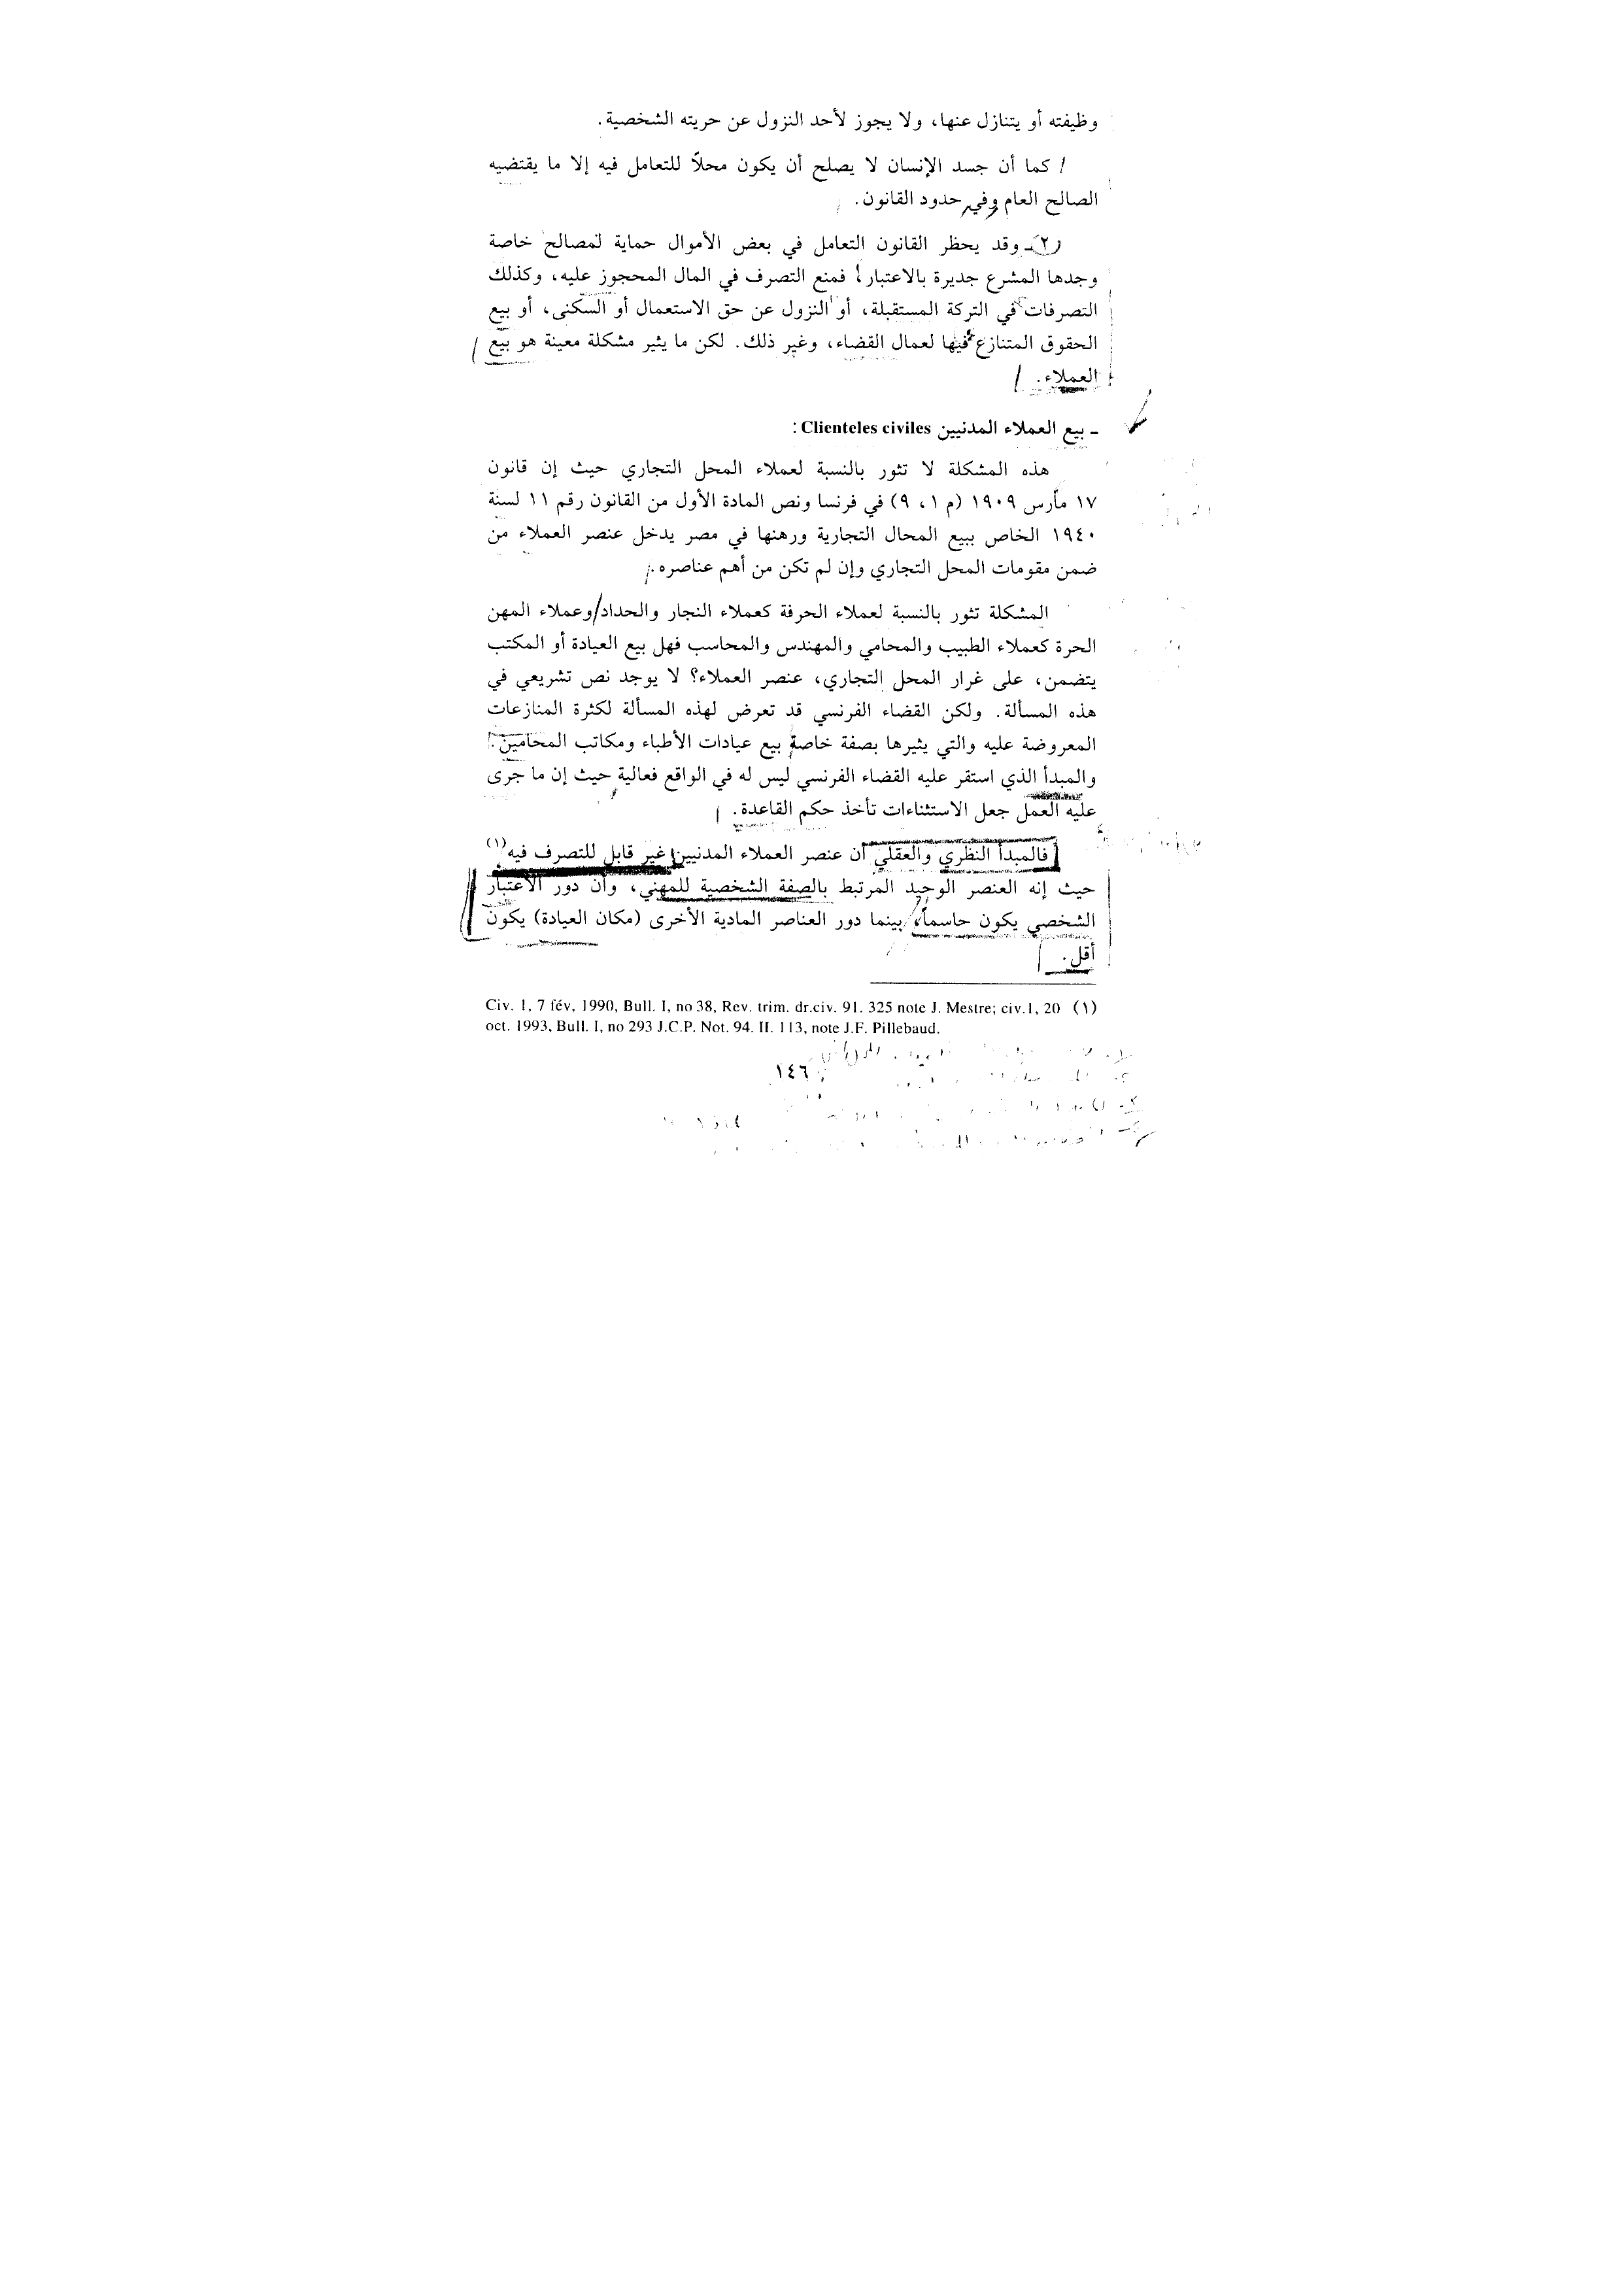 وظيفته أو يتنازل عنها، ولا يجوز لأحد النزول عن حريته الشخصية.
كما أن جسد الإنسان لا يصلح أن يكون محلاً للتعامل فيه إلا ما يقتضيه
الصالح العام وفي حدود القانون.
(٢) ـ وقد يحظر القانون التعامل في بعض الأموال حماية لمصالح خاصة
وجدها المشرع جديرة بالاعتبار، فمنع التصرف في المال المحجوز عليه، وكذلك
التصرفات في التركة المستقبلة، أو النزول عن حق الاستعمال أو السكنى، أو بيع
الحقوق المتنازع فيها لعمال القضاء، وغير ذلك. لكن ما يثير مشكلة معينة هو بيع
العملاء.
ـ بيع العملاء المدنيين Clienteles civiles :
هذه المشكلة لا تثور بالنسبة لعملاء المحل التجاري حيث إن قانون
١٧ مارس ١٩٠٩ (م ١، ٩) في فرنسا ونص المادة الأول من القانون رقم ١١ لسنة
١٩٤٠ الخاص ببيع المحال التجارية ورهنها في مصر يدخل عنصر العملاء من
ضمن مقومات المحل التجاري وإن لم تكن من أهم عناصره.
المشكلة تثور بالنسبة لعملاء الحرفة كعملاء النجار والحداد/وعملاء المهن
الحرة كعملاء الطبيب والمحامي والمهندس والمحاسب فهل بيع العيادة أو المكتب
يتضمن، على غرار المحل التجاري، عنصر العملاء؟ لا يوجد نص تشريعي في
هذه المسألة. ولكن القضاء الفرنسي قد تعرض لهذه المسألة لكثرة المنازعات
المعروضة عليه والتي يثيرها بصفة خاصة بيع عيادات الأطباء ومكاتب المحامين.
والمبدأ الذي استقر عليه القضاء الفرنسي ليس له في الواقع فعالية حيث إن ما جرى
عليه العمل جعل الاستثناءات تأخذ حكم القاعدة.
فالمبدأ النظري والعقلي أن عنصر العملاء المدنيين غير قابل للتصرف فيه(١)
حيث إنه العنصر الوحيد المرتبط بالصفة الشخصية للمهني، وأن دور الاعتبار
الشخصي يكون حاسماً، بينما دور العناصر المادية الأخرى (مكان العيادة) يكون
أقل.
(١) Civ. 1, 7 fév, 1990, Bull. I, no 38, Rev. trim. dr.civ. 91. 325 note J. Mestre; civ.1, 20
oct. 1993, Bull. I, no 293 J.C.P. Not. 94. II. 113, note J.F. Pillebaud.
١٤٦